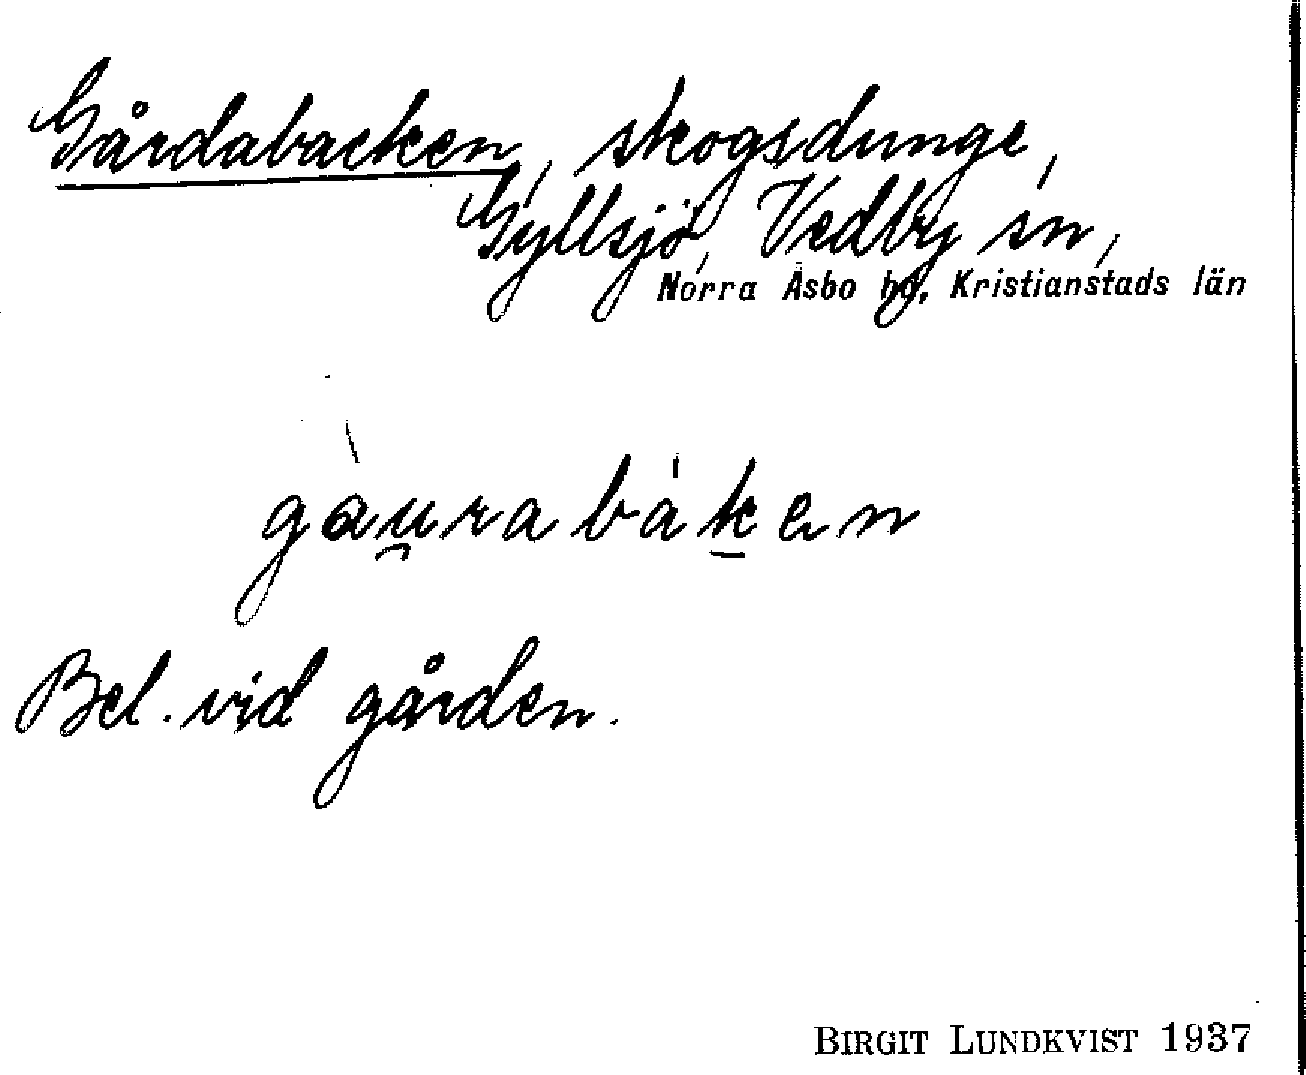 Gårdabacken, skogsdunge,
Gyllsjö, Vedby sn,
Norra Åsbo hd, Kristianstads län
gàu̯rabák̲en
Bel. vid gården.
BIRGIT LUNDKVIST 1937